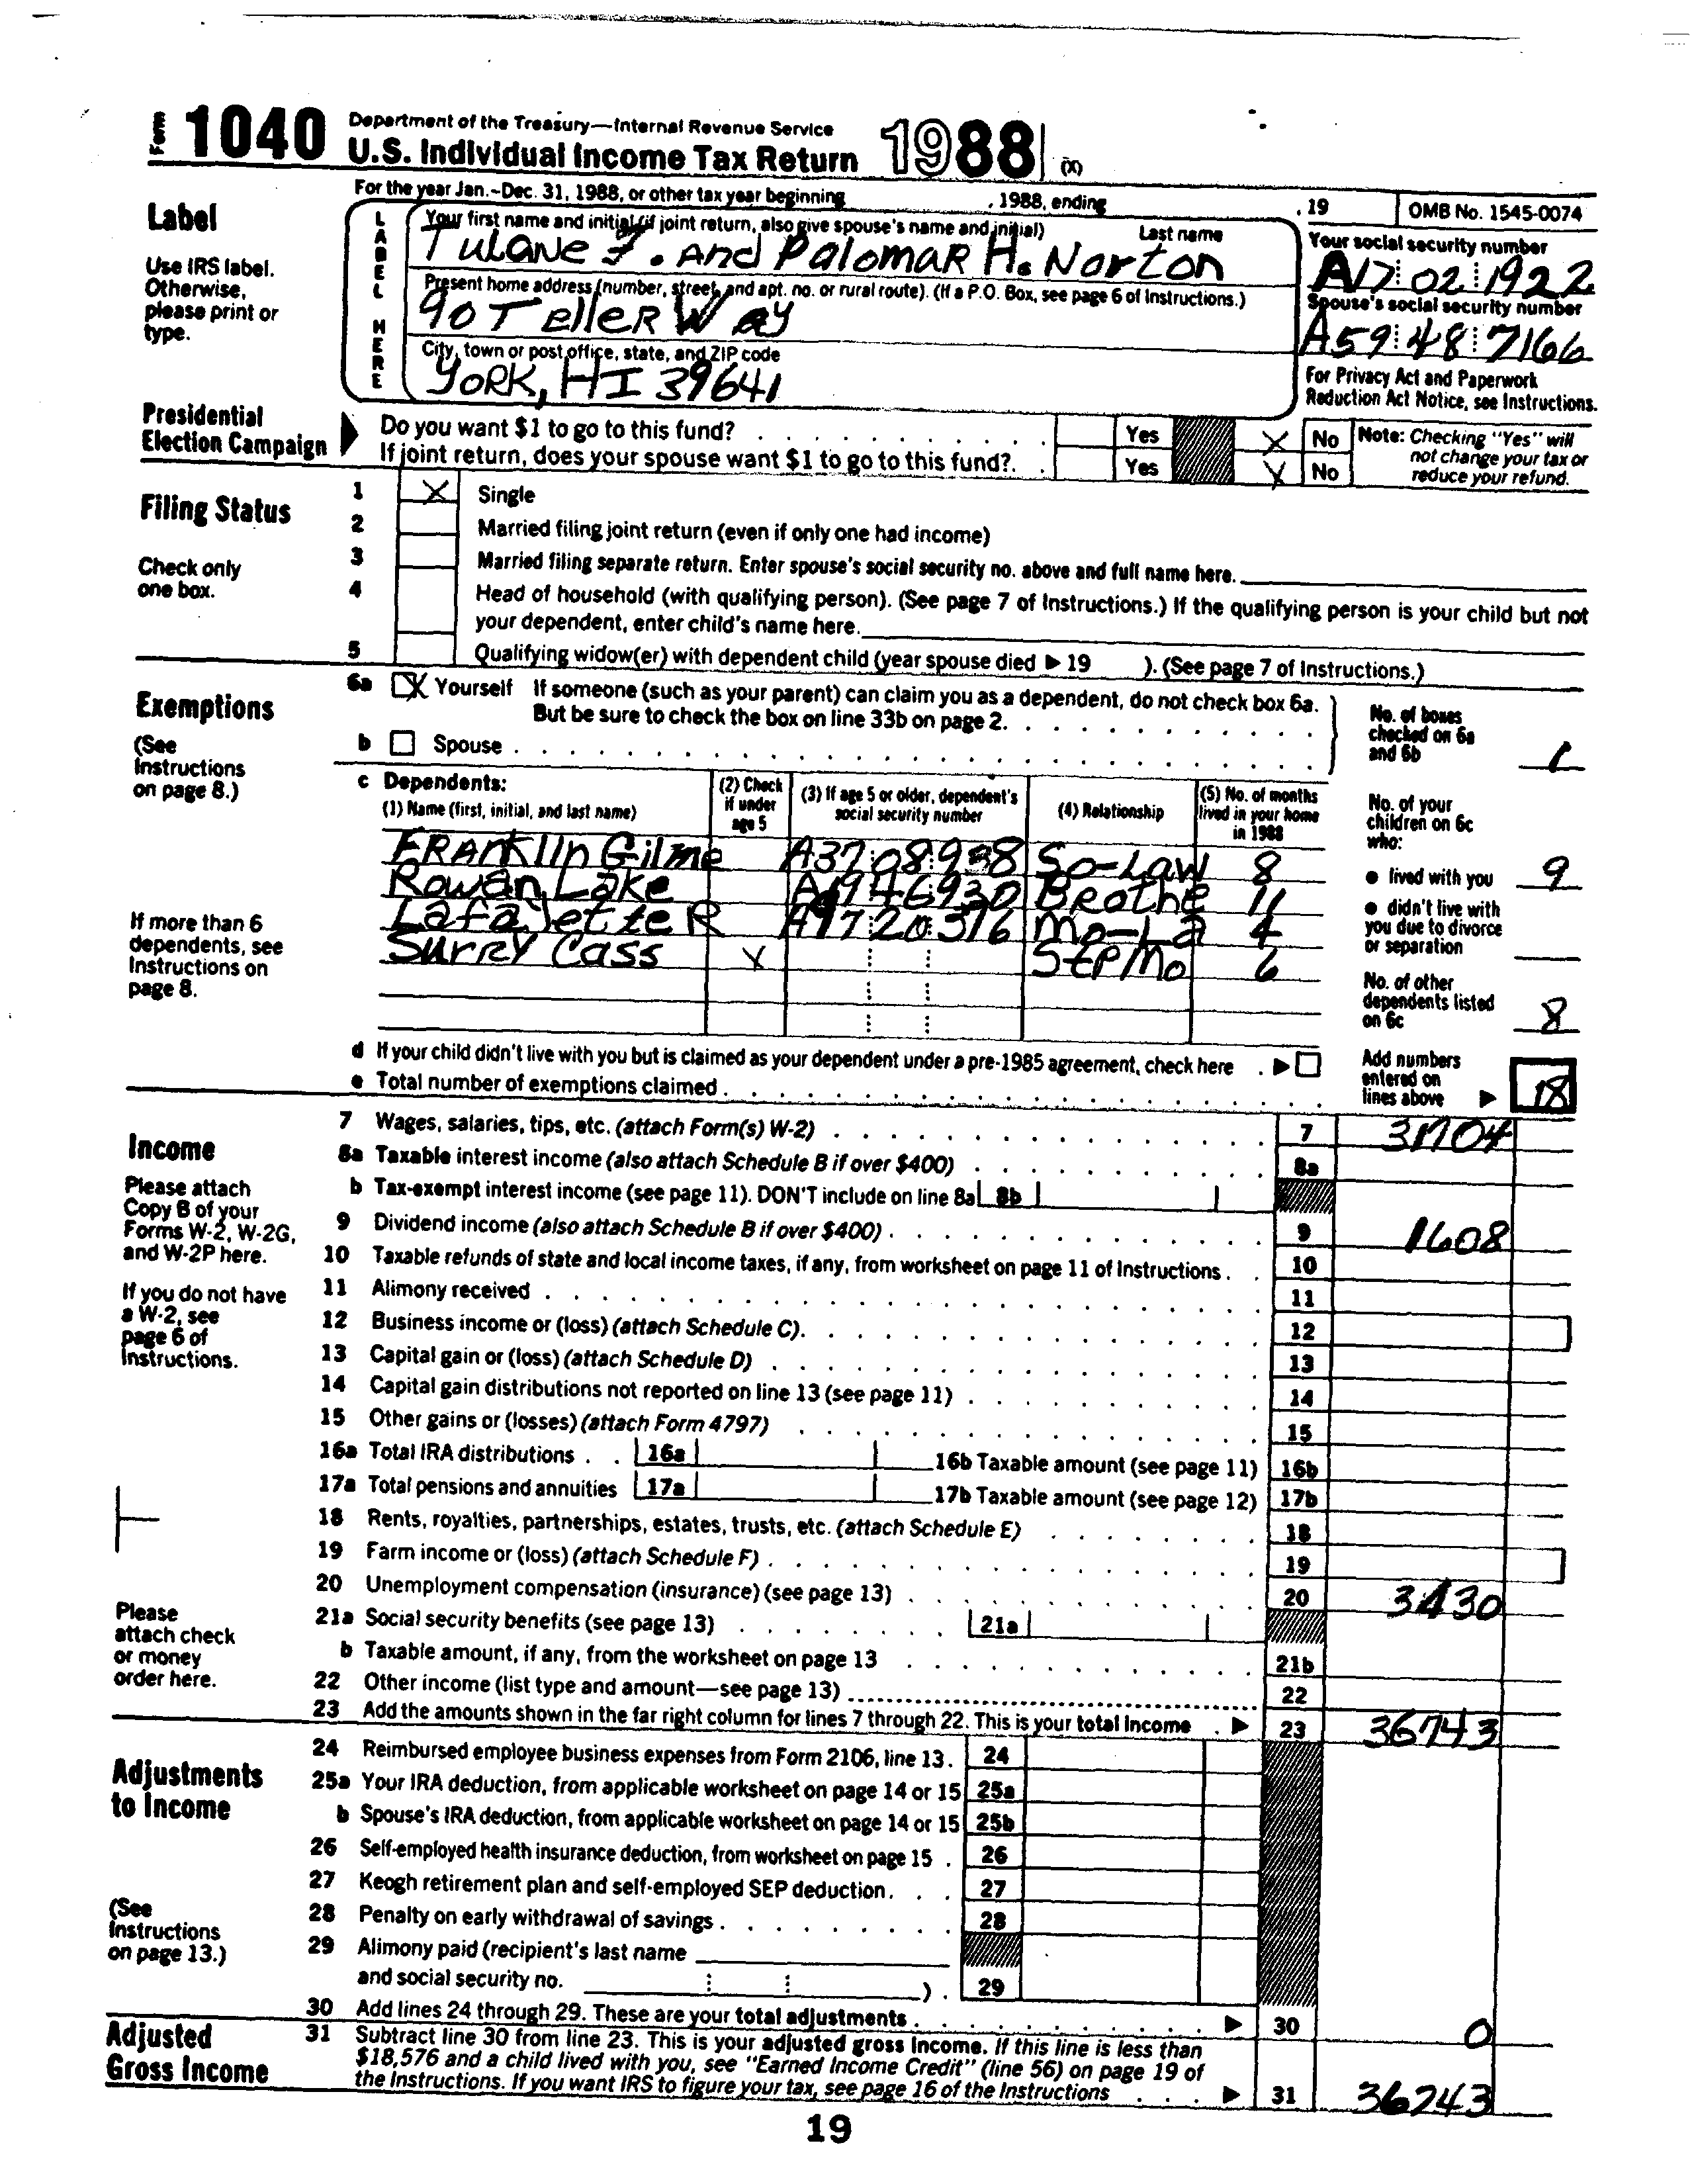 Form 1040 Department of the Treasury—Internal Revenue Service
U.S. Individual Income Tax Return 1988 (X)
For the year Jan.-Dec. 31, 1988, or other tax year beginning , 1988, ending , 19 OMB No. 1545-0074
Label
Use IRS label.
Otherwise,
please print or
type.
LABEL HERE
Your first name and initial (if joint return, also give spouse's name and initial) Last name
Tulane J. And Palomar H. Norton
Present home address (number, street, and apt. no. or rural route). (If a P.O. Box, see page 6 of Instructions.)
90 Teller Way
City, town or post office, state, and ZIP code
York, HI 39641
Your social security number
A17 02 1922
Spouse's social security number
A59 48 7166
For Privacy Act and Paperwork
Reduction Act Notice, see Instructions.
Presidential
Election Campaign
Do you want $1 to go to this fund? Yes X No
If joint return, does your spouse want $1 to go to this fund?. Yes X No
Note: Checking "Yes" will
not change your tax or
reduce your refund.
Filing Status
Check only
one box.
1 X Single
2 Married filing joint return (even if only one had income)
3 Married filing separate return. Enter spouse's social security no. above and full name here.
4 Head of household (with qualifying person). (See page 7 of Instructions.) If the qualifying person is your child but not
your dependent, enter child's name here.
5 Qualifying widow(er) with dependent child (year spouse died ▶ 19 ). (See page 7 of Instructions.)
Exemptions
(See
Instructions
on page 8.)
6a X Yourself If someone (such as your parent) can claim you as a dependent, do not check box 6a.
But be sure to check the box on line 33b on page 2.
b Spouse
No. of boxes
checked on 6a
and 6b 1
c Dependents:
(1) Name (first, initial, and last name)
(2) Check
if under
age 5
(3) If age 5 or older, dependent's
social security number
(4) Relationship
(5) No. of months
lived in your home
in 1988
Franklin Gilme A37 08 938 So-Law 8
Rowan Lake A19 46 930 Brothe 11
Lafayette R A97 20 316 Mo-La 4
Surry Cass X StPMo 6
If more than 6
dependents, see
Instructions on
page 8.
No. of your
children on 6c
who:
● lived with you 9
● didn't live with
you due to divorce
or separation
No. of other
dependents listed
on 6c 8
d If your child didn't live with you but is claimed as your dependent under a pre-1985 agreement, check here . ▶
e Total number of exemptions claimed
Add numbers
entered on
lines above ▶ 18
Income
Please attach
Copy B of your
Forms W-2, W-2G,
and W-2P here.
If you do not have
a W-2, see
page 6 of
Instructions.
Please
attach check
or money
order here.
7 Wages, salaries, tips, etc. (attach Form(s) W-2) 7 31704
8a Taxable interest income (also attach Schedule B if over $400) 8a
b Tax-exempt interest income (see page 11). DON'T include on line 8a 8b
9 Dividend income (also attach Schedule B if over $400) 9 1608
10 Taxable refunds of state and local income taxes, if any, from worksheet on page 11 of Instructions 10
11 Alimony received 11
12 Business income or (loss) (attach Schedule C). 12
13 Capital gain or (loss) (attach Schedule D) 13
14 Capital gain distributions not reported on line 13 (see page 11) 14
15 Other gains or (losses) (attach Form 4797) 15
16a Total IRA distributions 16a 16b Taxable amount (see page 11) 16b
17a Total pensions and annuities 17a 17b Taxable amount (see page 12) 17b
18 Rents, royalties, partnerships, estates, trusts, etc. (attach Schedule E) 18
19 Farm income or (loss) (attach Schedule F) 19
20 Unemployment compensation (insurance) (see page 13) 20 3430
21a Social security benefits (see page 13) 21a
b Taxable amount, if any, from the worksheet on page 13 21b
22 Other income (list type and amount—see page 13) 22
23 Add the amounts shown in the far right column for lines 7 through 22. This is your total income ▶ 23 36743
Adjustments
to Income
(See
Instructions
on page 13.)
24 Reimbursed employee business expenses from Form 2106, line 13. 24
25a Your IRA deduction, from applicable worksheet on page 14 or 15 25a
b Spouse's IRA deduction, from applicable worksheet on page 14 or 15 25b
26 Self-employed health insurance deduction, from worksheet on page 15 26
27 Keogh retirement plan and self-employed SEP deduction. 27
28 Penalty on early withdrawal of savings 28
29 Alimony paid (recipient's last name
and social security no. ). 29
30 Add lines 24 through 29. These are your total adjustments ▶ 30 0
Adjusted
Gross Income
31 Subtract line 30 from line 23. This is your adjusted gross income. If this line is less than
$18,576 and a child lived with you, see "Earned Income Credit" (line 56) on page 19 of
the Instructions. If you want IRS to figure your tax, see page 16 of the Instructions ▶ 31 36743
19